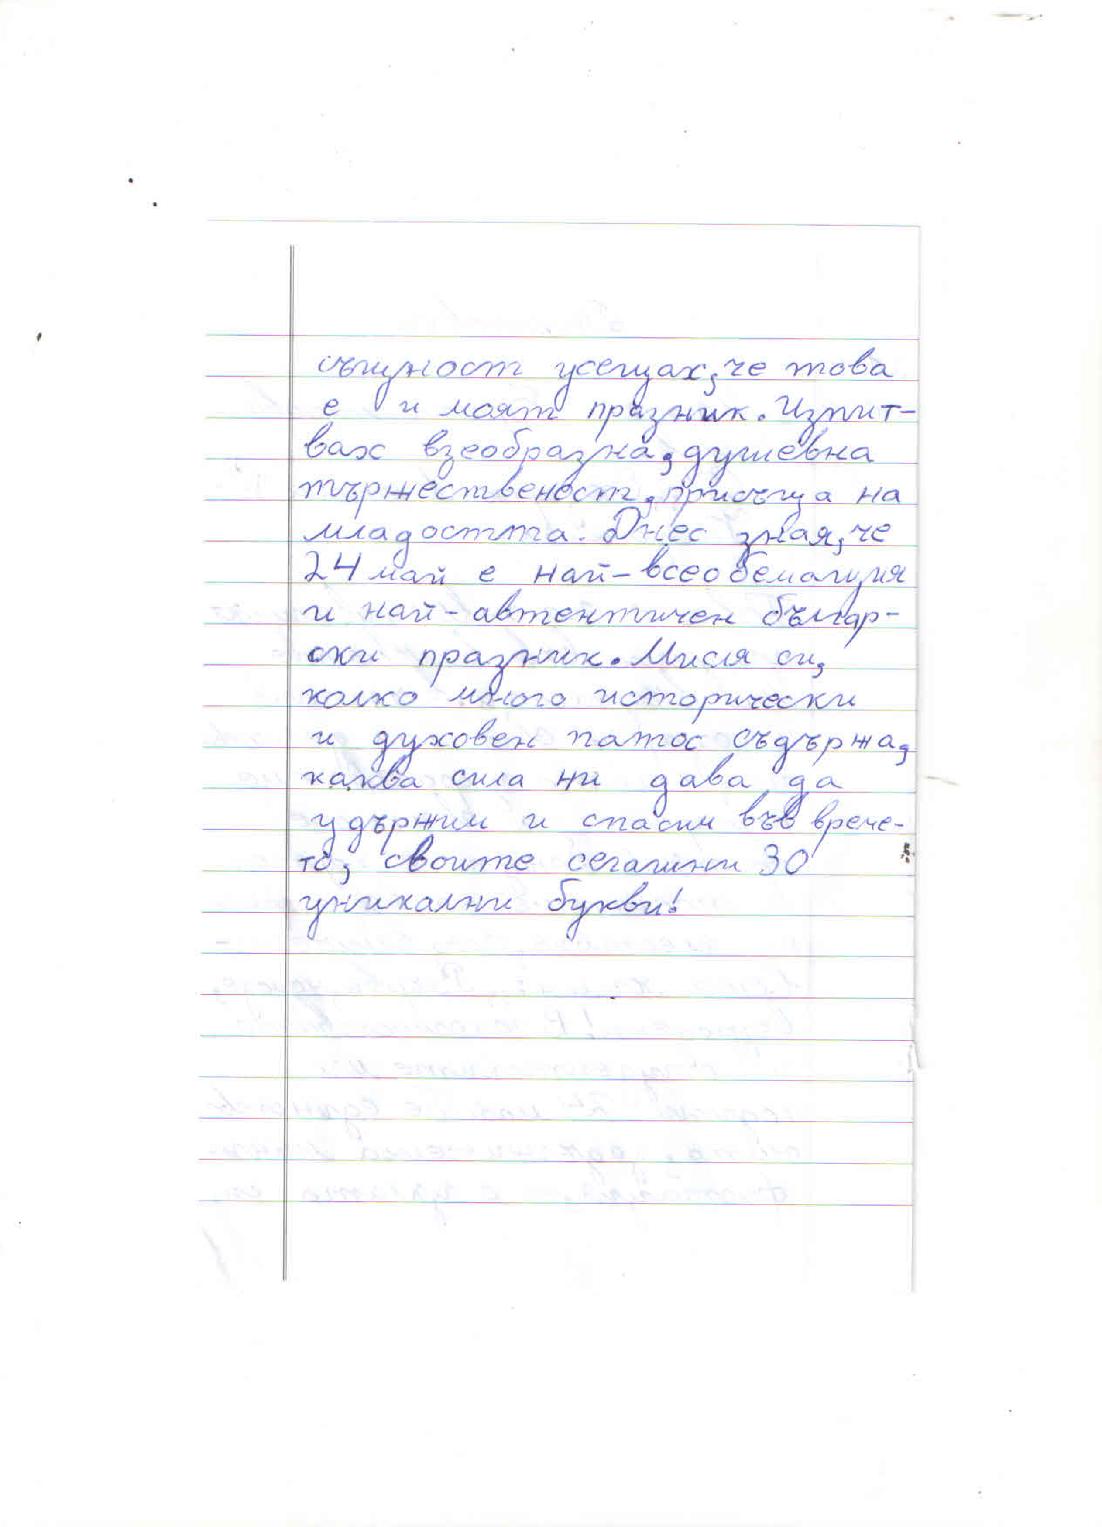 същност усещах, че това
е и моят празник. Изпит-
вах взеобразна, душевна
тържественост, присъща на
младостта. Днес зная, че
24 май е най-всеобемащия
и най-автентичен българ-
ски празник. Мисля си,
колко много исторически
и духовен патос съдържа,
каква сила ни дава, да
удържим и спасим във врече-
то, своите сегашни 30
уникални букви!